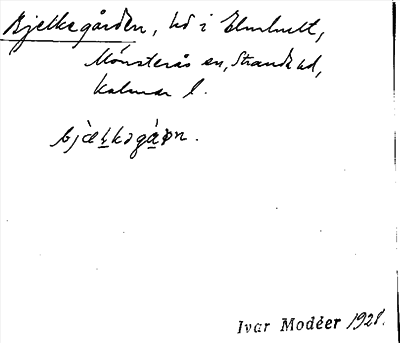 Bjelkegården, hd i Elmhult,
Mönsterås sn, Stranda hd,
Kalmar l.
bjæ̀lkəgá̱ɷn.
Ivar Modéer 1928.